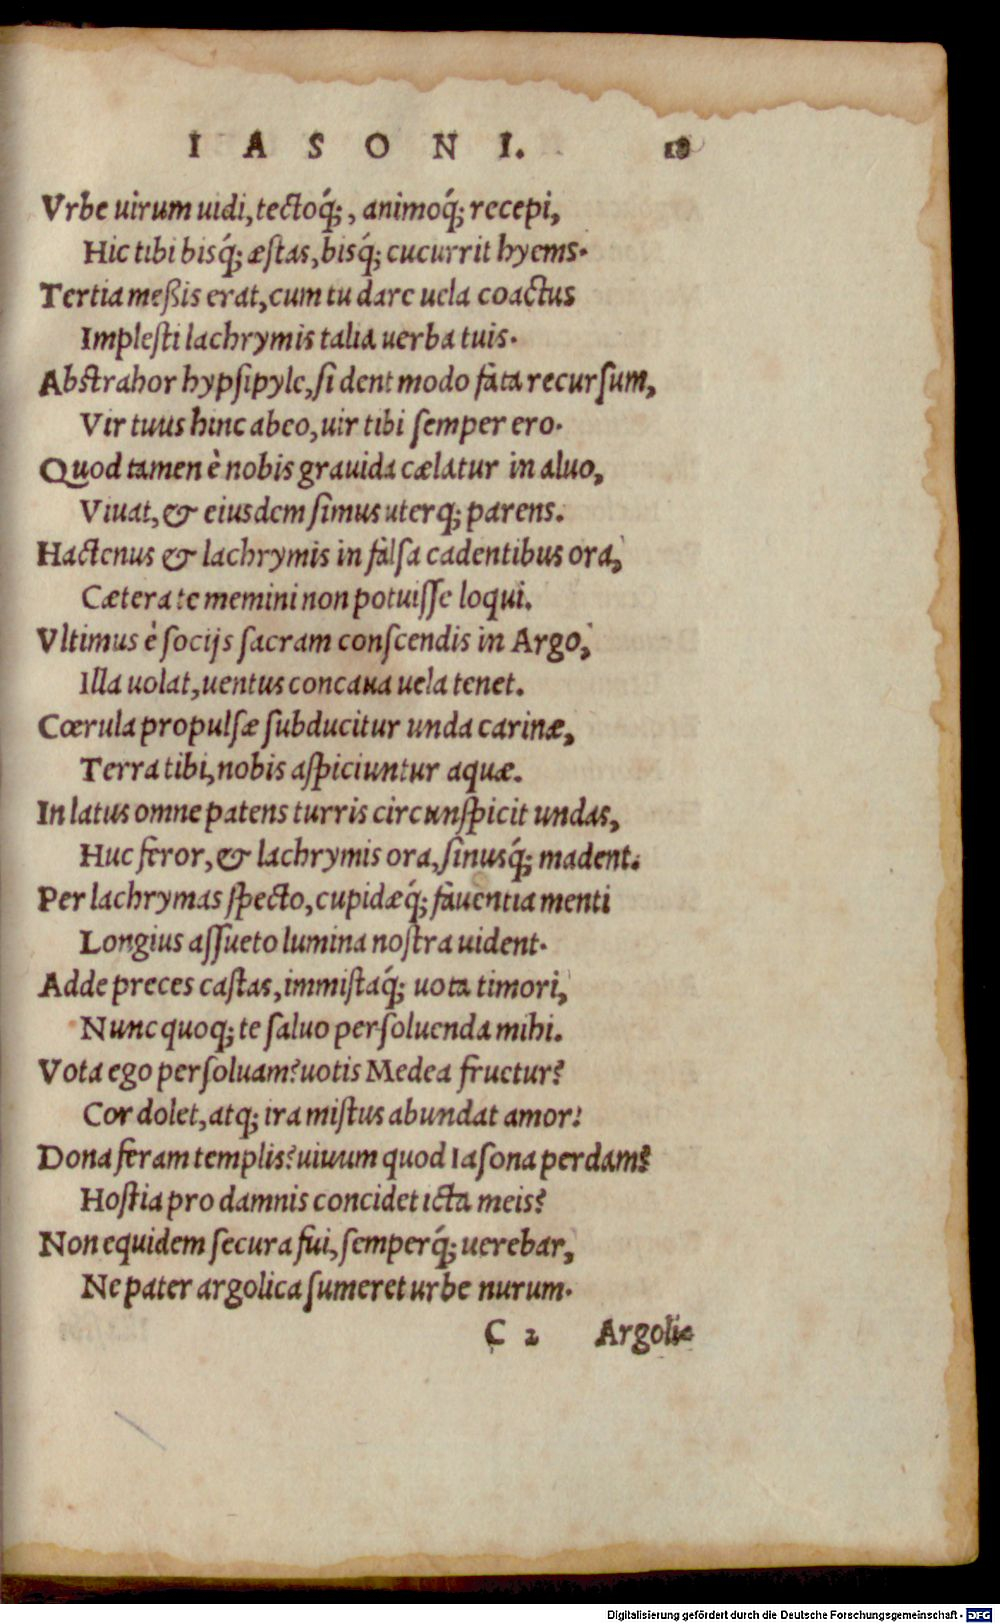 IASONI. 18
Vrbe uirum uidi, tectoq́;, animoq́; recepi,
Hic tibi bisq́; æſtas, bisq́; cucurrit hyems.
Tertia meßis erat, cum tu dare uela coactus
Impleſti lachrymis talia uerba tuis.
Abſtrahor hypſipyle, ſi dent modo fata recurſum,
Vir tuus hinc abeo, uir tibi ſemper ero.
Quod tamen è nobis grauida cælatur in aluo,
Viuat, & eiusdem ſimus uterq; parens.
Hactenus & lachrymis in falſa cadentibus ora,
Cætera te memini non potuiſſe loqui.
Vltimus è ſocijs ſacram conſcendis in Argo,
Illa uolat, uentus concaua uela tenet.
Cœrula propulſæ ſubducitur unda carinæ,
Terra tibi, nobis aſpiciuntur aquæ.
In latus omne patens turris circunſpicit undas,
Huc feror, & lachrymis ora, ſinusq́; madent.
Per lachrymas ſpecto, cupidæq́; fauentia menti
Longius aſſueto lumina noſtra uident.
Adde preces caſtas, immiſtaq́; uota timori,
Nunc quoq; te ſaluo perſoluenda mihi.
Vota ego perſoluam? uotis Medea fruetur?
Cor dolet, atq; ira miſtus abundat amor!
Dona feram templis? uiuum quod Iaſona perdam?
Hoſtia pro damnis concidet icta meis?
Non equidem ſecura fui, ſemperq́; uerebar,
Ne pater argolica ſumeret urbe nurum.
C 2 Argoli-
Digitalisierung gefördert durch die Deutsche Forschungsgemeinschaft - DFG